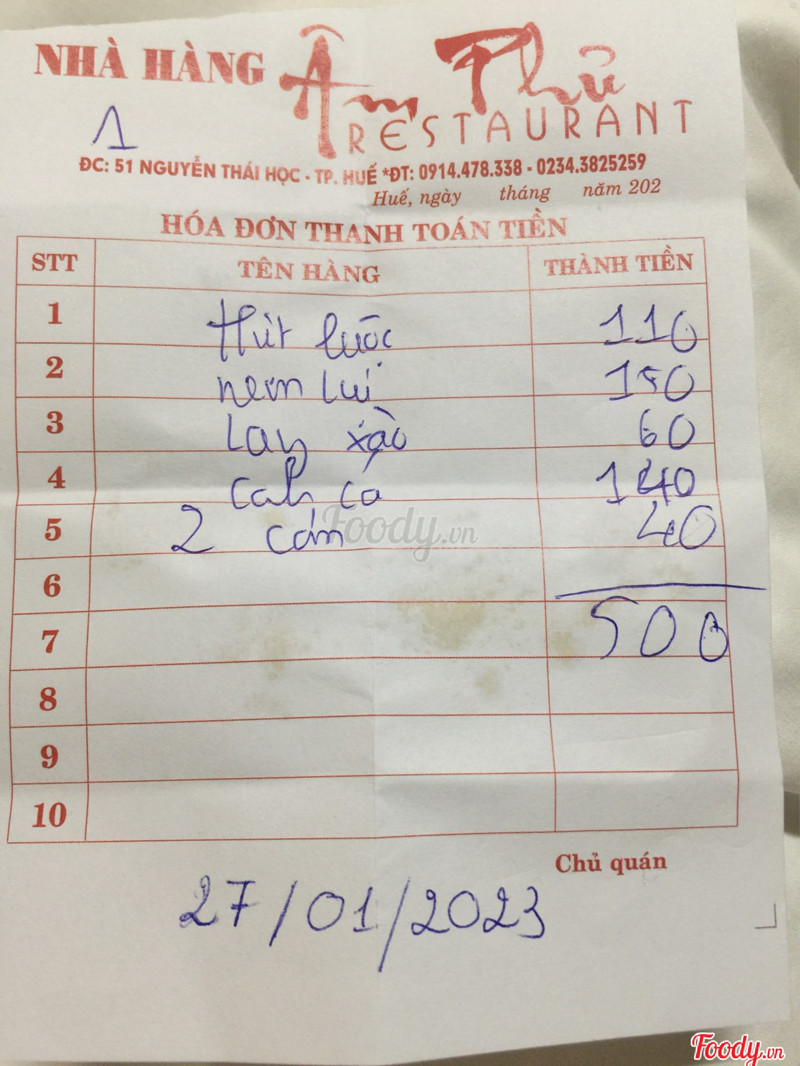 NHÀ HÀNG Âm Phủ
RESTAURANT
1
ĐC: 51 NGUYỄN THÁI HỌC - TP. HUẾ *ĐT: 0914.478.338 - 0234.3825259
Huế, ngày tháng năm 202
HÓA ĐƠN THANH TOÁN TIỀN
STT TÊN HÀNG THÀNH TIỀN
1 thịt luộc 110
2 nem lụi 150
3 Lay xào 60
4 canh ca 140
5 2 cơm 40
6
7 500
8
9
10
Chủ quán
27/01/2023
Foody.vn
Foody.vn